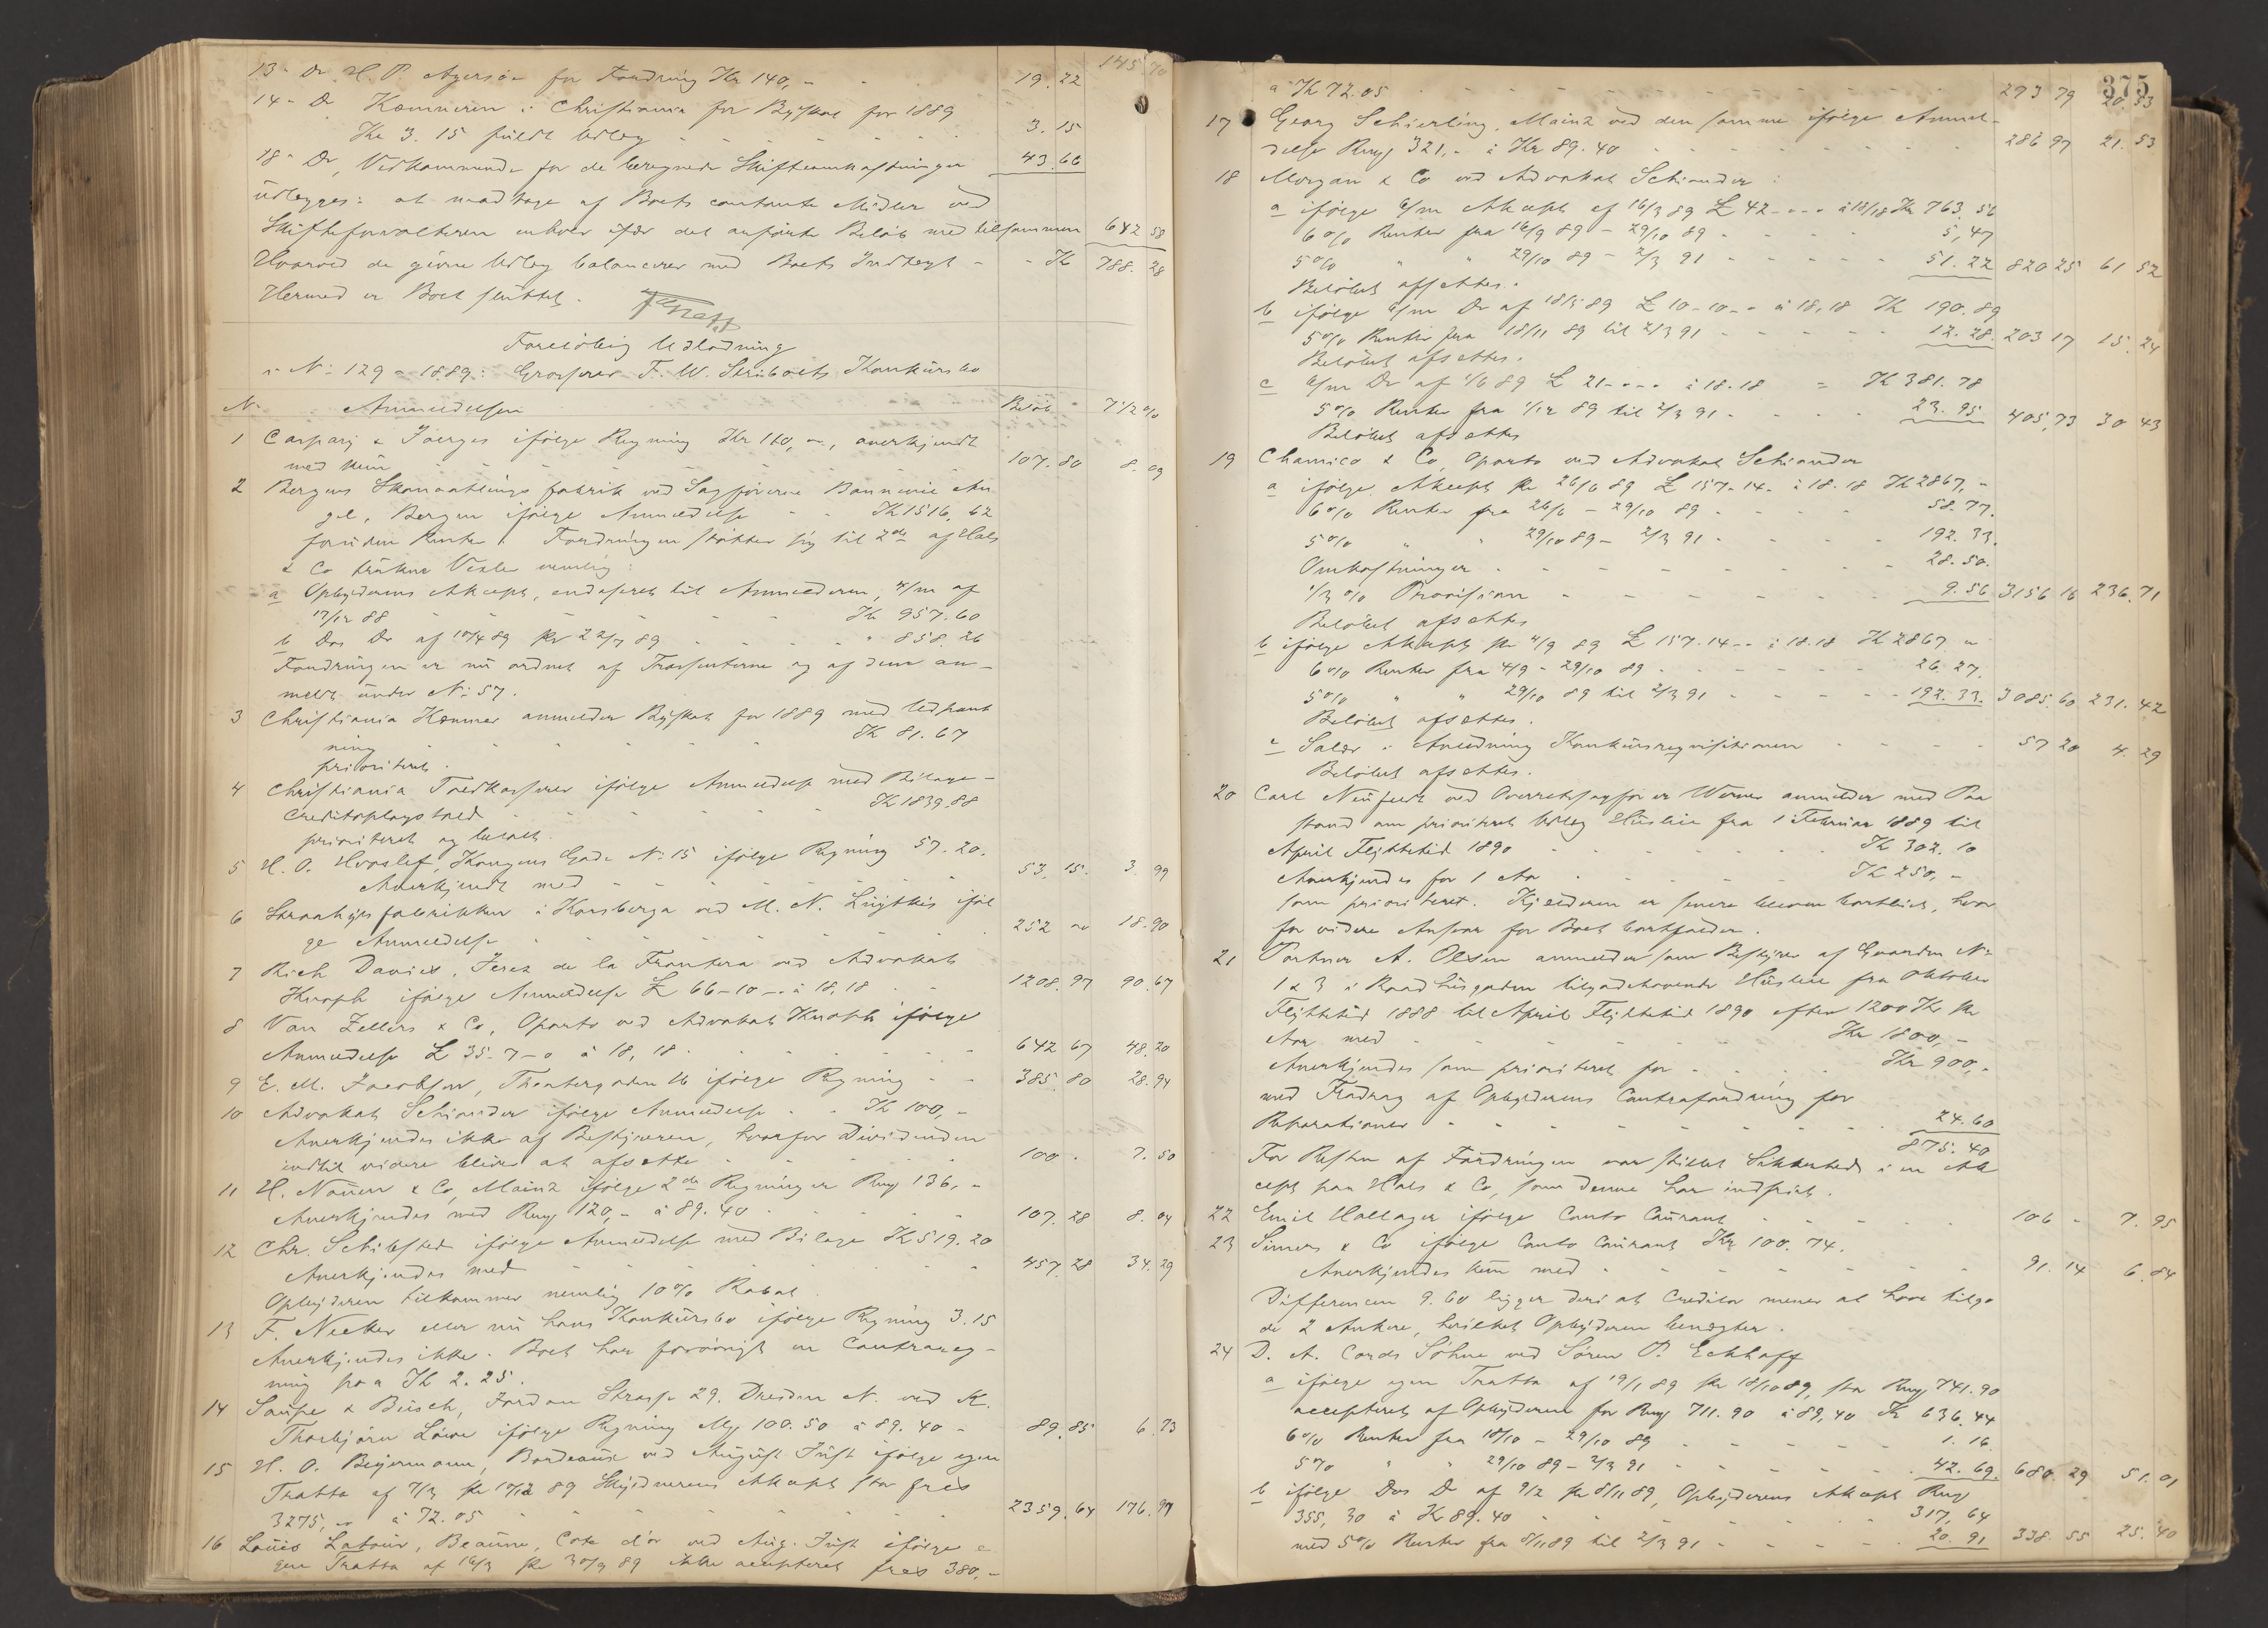 145.70
13 - Do H. P. Agersøe for Fordring Kr 140, - 19.22
14 - Do Kæmneren i Christiania for Byskat for 1889
Kr 3.15 fuldt Udlæg 3.15
18 - Do, Vedkommende for de beregnede Skifteomkostninger 43.66
udlægges: at modtage af Boets contante Midler ved
Skifteforvalteren enhver især det anførte Beløb med tilsammen 642 58
Hvorved de givne Udlæg balancerer med Boets Indtægt - - Kr 788.28
Hermed er Boet sluttet.
Foreløbig Udlodning
i No 129 - 1889: Grosserer F. W. Seriboets Konkursbo
No Anmeldelsen Beløb 7 1/2 %
1 Caspary & Joerges ifølge Regning Kr 110, -, anerkjendt
med kun 107.80 8.09
2 Bergens Skomatlings fabrik ved Sagfører Bonnevie An
gel, Bergen ifølge Anmeldelse - - Kr 1516,62
foruden Renter. Fordringen støtter sig til 2de af Hals
& Co trukne Vexler nemlig:
a Opbyderens Akcept, endosseret til Anmelderen, 4/m af
17/12 88 Kr 957.60
b Dos Do af 10/4 89 pr 22/7 89 " 858.26
Fordringen er nu ordnet af Trassenterne og af dem an-
meldt under No 57.
3 Christiania Kæmner anmelder Byskat for 1889 med Udpant
ning Kr 81.67
prioriteret.
4 Christiania Toldkasserer ifølge Anmeldelse med Bilage -
Creditoplagstold Kr 1839.88
prioriteret og betalt.
5 H. O. Hvoslef, Kongens Gade No 15 ifølge Regning 57.20.
Anerkjendt med 53.15. 3.99
6 Straahylsfabrikken i Korsberga ved M. N. Lüytkis iføl
ge Anmeldelse 252 - 18.90
7 Rich Davies, Jerez de la Frontera ved Advokat
Knoph ifølge Anmeldelse £ 66-10-. à 18.18 1208.97 90.67
8 Van Zellers & Co, Oporto ved Advokat Knoph ifølge
Anmeldelse £ 35-7-0 à 18,18 642 67 48.20
9 E. M. Jacobsen, Theatergaden 16 ifølge Regning - - 385.80 28.94
10 Advokat Schiander ifølge Anmeldelse - - Kr 100, -
Anerkjendes ikke af Bestyreren, hvorfor Dividenden
indtil videre bliver at afsætte 100 - 7.50
11 H. Nauen & Co, Mainz ifølge 2de Regninger Rmg 136, -
Anerkjendes med Rmg 120, - à 89.40 107.28 8.04
12 Chr. Schibsted ifølge Anmeldelse med Bilage Kr 519.20
Anerkjendes med 457.28 34.29
Opbyderen tilkommer nemlig 10% Rabat.
13 F. Necker eller nu hans Konkursbo ifølge Regning 3.15
Anerkjendes ikke. Boet har forøvrigt en Contrareg-
ning paa Kr 2.25.
14 Saupe & Busch, Jordan Strasse 29. Dresden N. ved A.
Thorbjørn Løwe ifølge Regning Mg 100.50 à 89.40 - 89.85 6.73
15 H. O. Beyermann, Bordeaux ved August Just ifølge egen
Tratta af 7/3 pr 10/12 89 Skyldnerens Akcept stor frcs
3275, - à 72.05 2359.64 176.97
16 Louis Latour, Beaune, Cote d'or ved Aug. Just ifølge e
gen Tratta af 16/3 pr 30/9 89 ikke accepteret frcs 380, -
375
à Kr 72.05 273 79 20.53
17 Georg Schierling, Mainz ved den samme ifølge Anmel-
delse Rmg 321, - à Kr 89.40 286 97 21.53
18 Morgan & Co ved Advokat Schiander:
a ifølge 6/m Akcept af 16/3 89 £ 42 - - - à 18/18 Kr 763.56
6% Renter fra 16/9 89 - 29/10 89 5,47
5% " " 29/10 89 - 2/3 91 51.22 820 25 61 52
Beløbet afsættes.
b ifølge 6/m Do af 18/5 89 £ 10-10-. à 18,18 Kr 190.89
5% Renter fra 18/11 89 til 2/3 91 12.28. 203 17 15.24
Beløbet afsættes.
c 6/m Do af 1/6 89 £ 21 - - - à 18.18 = Kr 381.78
5% Renter fra 1/12 89 til 2/3 91 23.95 405,73 30 43
Beløbet afsættes
19 Chamico & Co, Oporto ved Advokat Schiander
a ifølge Akcept pr 26/6 89 £ 157-14- à 18.18 Kr 2867, -
6% Renter fra 26/6 - 29/10 89 58.77.
5% " " 29/10 89 - 2/3 91 192.33.
Omkostninger 28.50.
1/3 % Provision 9.56 3156 16 236.71
Beløbet afsættes
b ifølge Akcept pr 4/9 89 £ 157.14 - - à 18.18 Kr 2867 -
6% Renter fra 4/9 - 29/10 89 26.27.
5% " " 29/10 89 til 2/3 91 192.33. 3085.60 231.42
Beløbet afsættes.
c Salær i Anledning Konkursrequisitionen 57 20 4.29
Beløbet afsættes.
20 Carl Neufeldt ved Overretssagfører Werner anmelder med Paa
stand om prioriteret Udlæg Husleie fra 1 Februar 1889 til
April Flyttetid 1890 Kr 302.10
Anerkjendes for 1 Aar Kr 250, -
som prioriteret. Kjælderen er senere bleven bortleiet, hvor
for videre Ansvar for Boet bortfalder.
21 Portner A. Olsen anmelder som Bestyrer af Gaarden No
1 & 3 i Raadhusgaden tilgodehavende Husleie fra Oktober
Flyttetid 1888 til April Flyttetid 1890 efter 1200 Kr pr
Aar med Kr 1800, -
Anerkjendes som prioriteret for Kr 900, -
med Fradrag af Opbyderens Contrafordring for
Reparationer 24.60
875.40
For Resten af Fordringen var stillet Sikkerhed i en Ak
cept paa Hals & Co, som denne har indfriet.
22 Emil Hallager ifølge Conto Courant 106 - 7.95
23 Simers & Co ifølge Conto Courant Kr 100.74.
Anerkjendes kun med 91.14 6.84
Differencen 9.60 ligger deri at Creditor mener at have tilgo
de 2 Ankere, hvilket Opbyderen benægter.
24 D. A. Cords Söhne ved Søren P. Eckhoff
a ifølge egen Tratta af 19/1 89 pr 18/10 89, stor Rmg 741.90
accepteret af Opbyderen for Rmg 711.90 à 89,40 Kr 636.44
6% Renter fra 18/10 - 29/10 89 1.16
5% " " 29/10 89 - 2/3 91 42.69. 680.29 51.01
b ifølge Dos Do af 9/2 pr 8/11 89, Opbyderens Akcept Rmg
355,30 à Kr 89.40 317,64
med 5% Renter fra 8/11 89 til 2/3 91 20.91 338.55 25.40